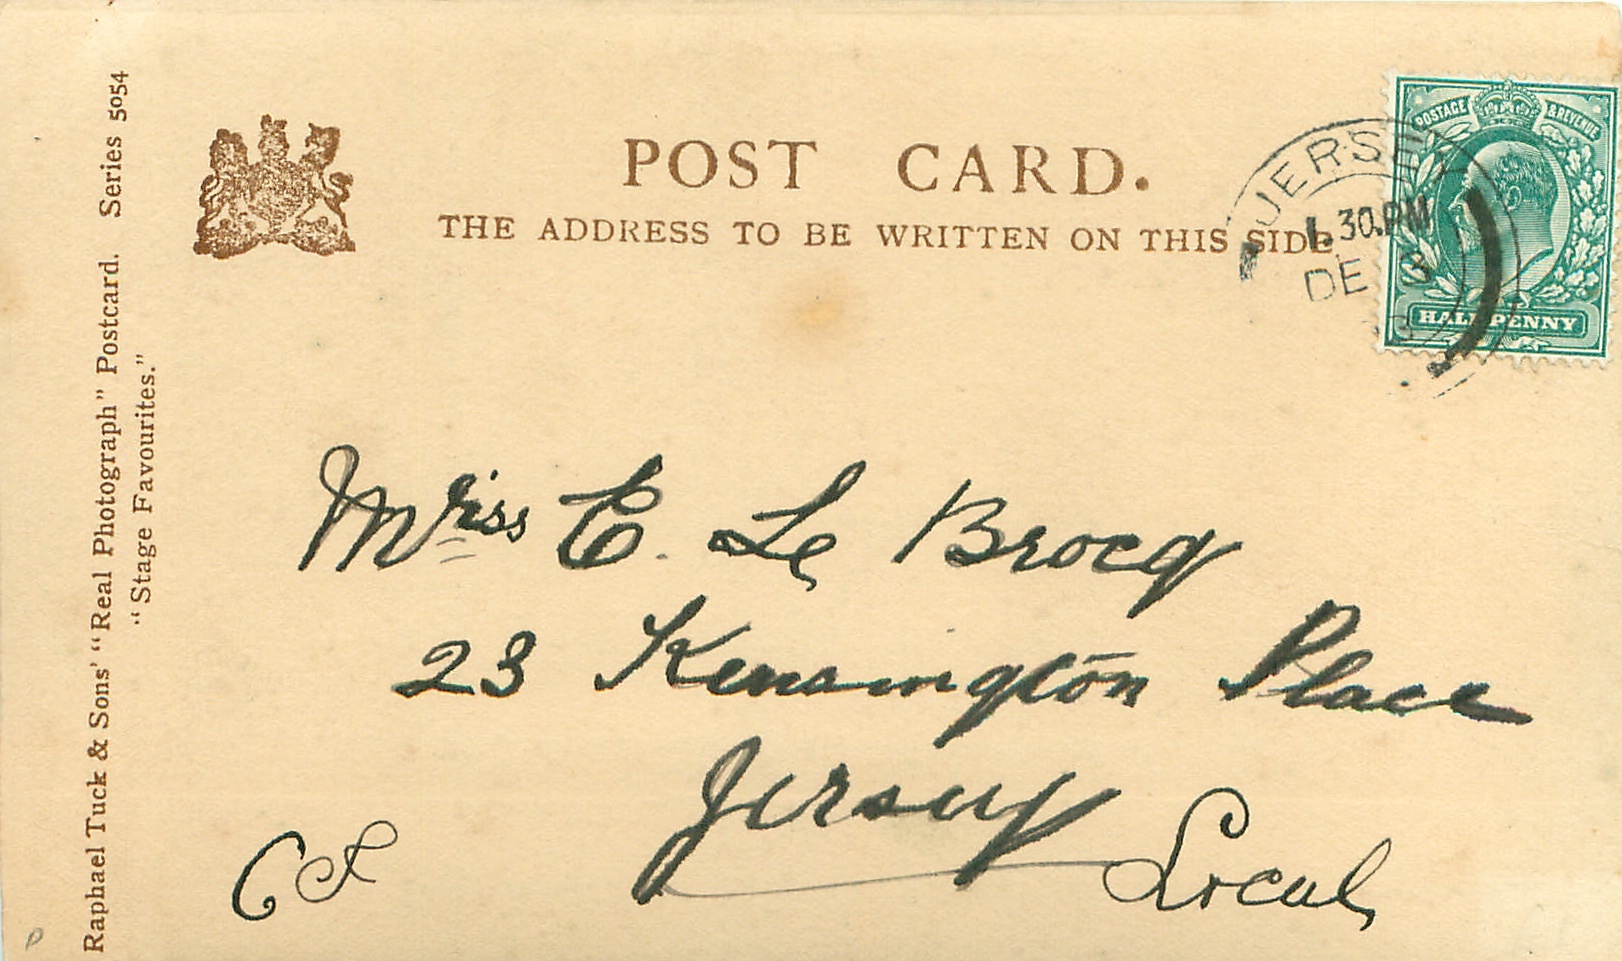 POST CARD.
THE ADDRESS TO BE WRITTEN ON THIS SIDE
Raphael Tuck & Sons' "Real Photograph" Postcard. Series 5054
"Stage Favourites."
POSTAGE & REVENUE
HALFPENNY
JERSEY
1.30.PM
DE 3
Miss E. Le Brocq
23 Kensington Place
Jersey
Local